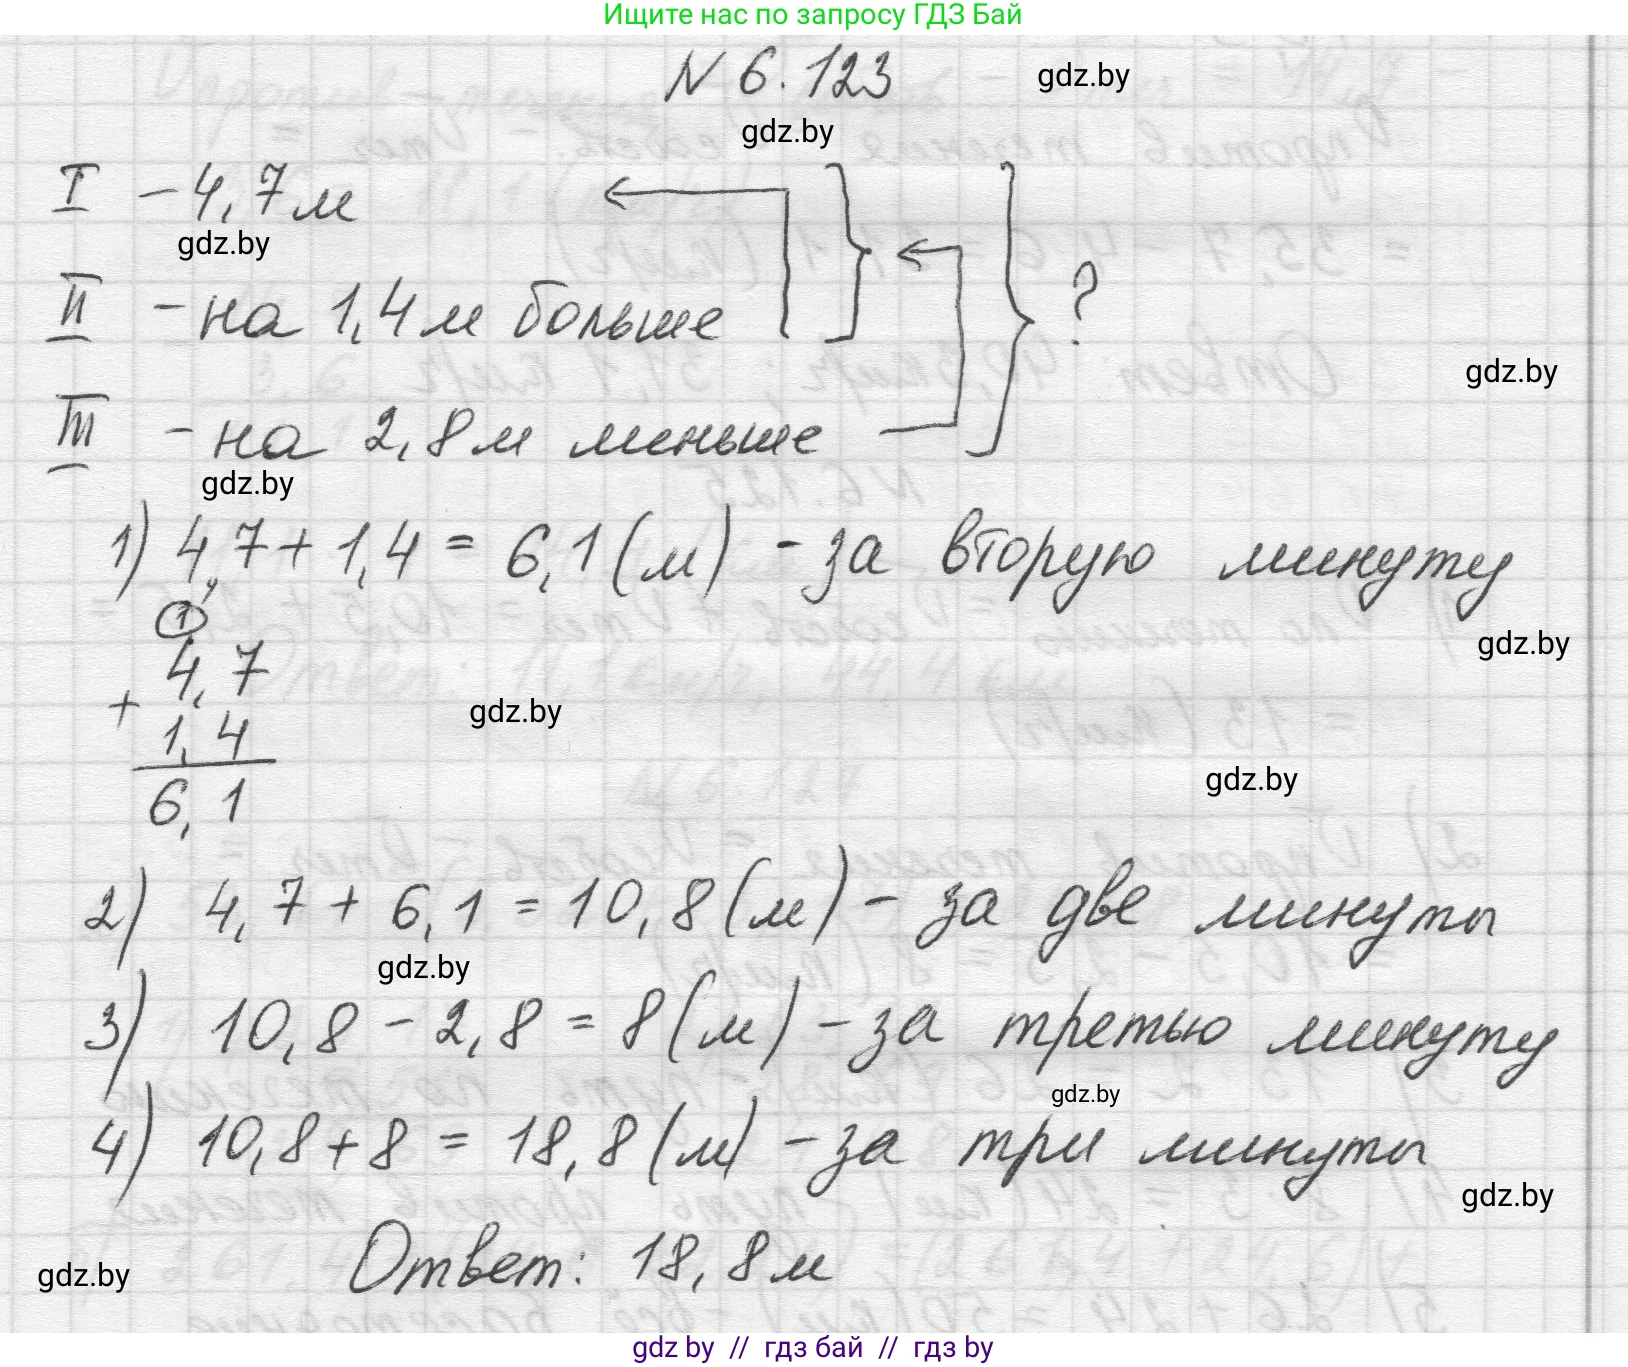 Ищите нас по запросу ГДЗ Бай
N 6.123
gdz.by
gdz.by
I - 4,7 м
gdz.by
II - на 1,4 м больше
?
gdz.by
III - на 2,8 м меньше
gdz.by
1) 4,7 + 1,4 = 6,1 (м) - за вторую минуту
1
gdz.by
4,7
+
gdz.by
1,4
gdz.by
6,1
2) 4,7 + 6,1 = 10,8 (м) - за две минуты
gdz.by
3) 10,8 - 2,8 = 8 (м) - за третью минуту
gdz.by
4) 10,8 + 8 = 18,8 (м) - за три минуты
gdz.by
Ответ: 18,8 м
gdz.by
gdz.by // гдз бай // гдз by